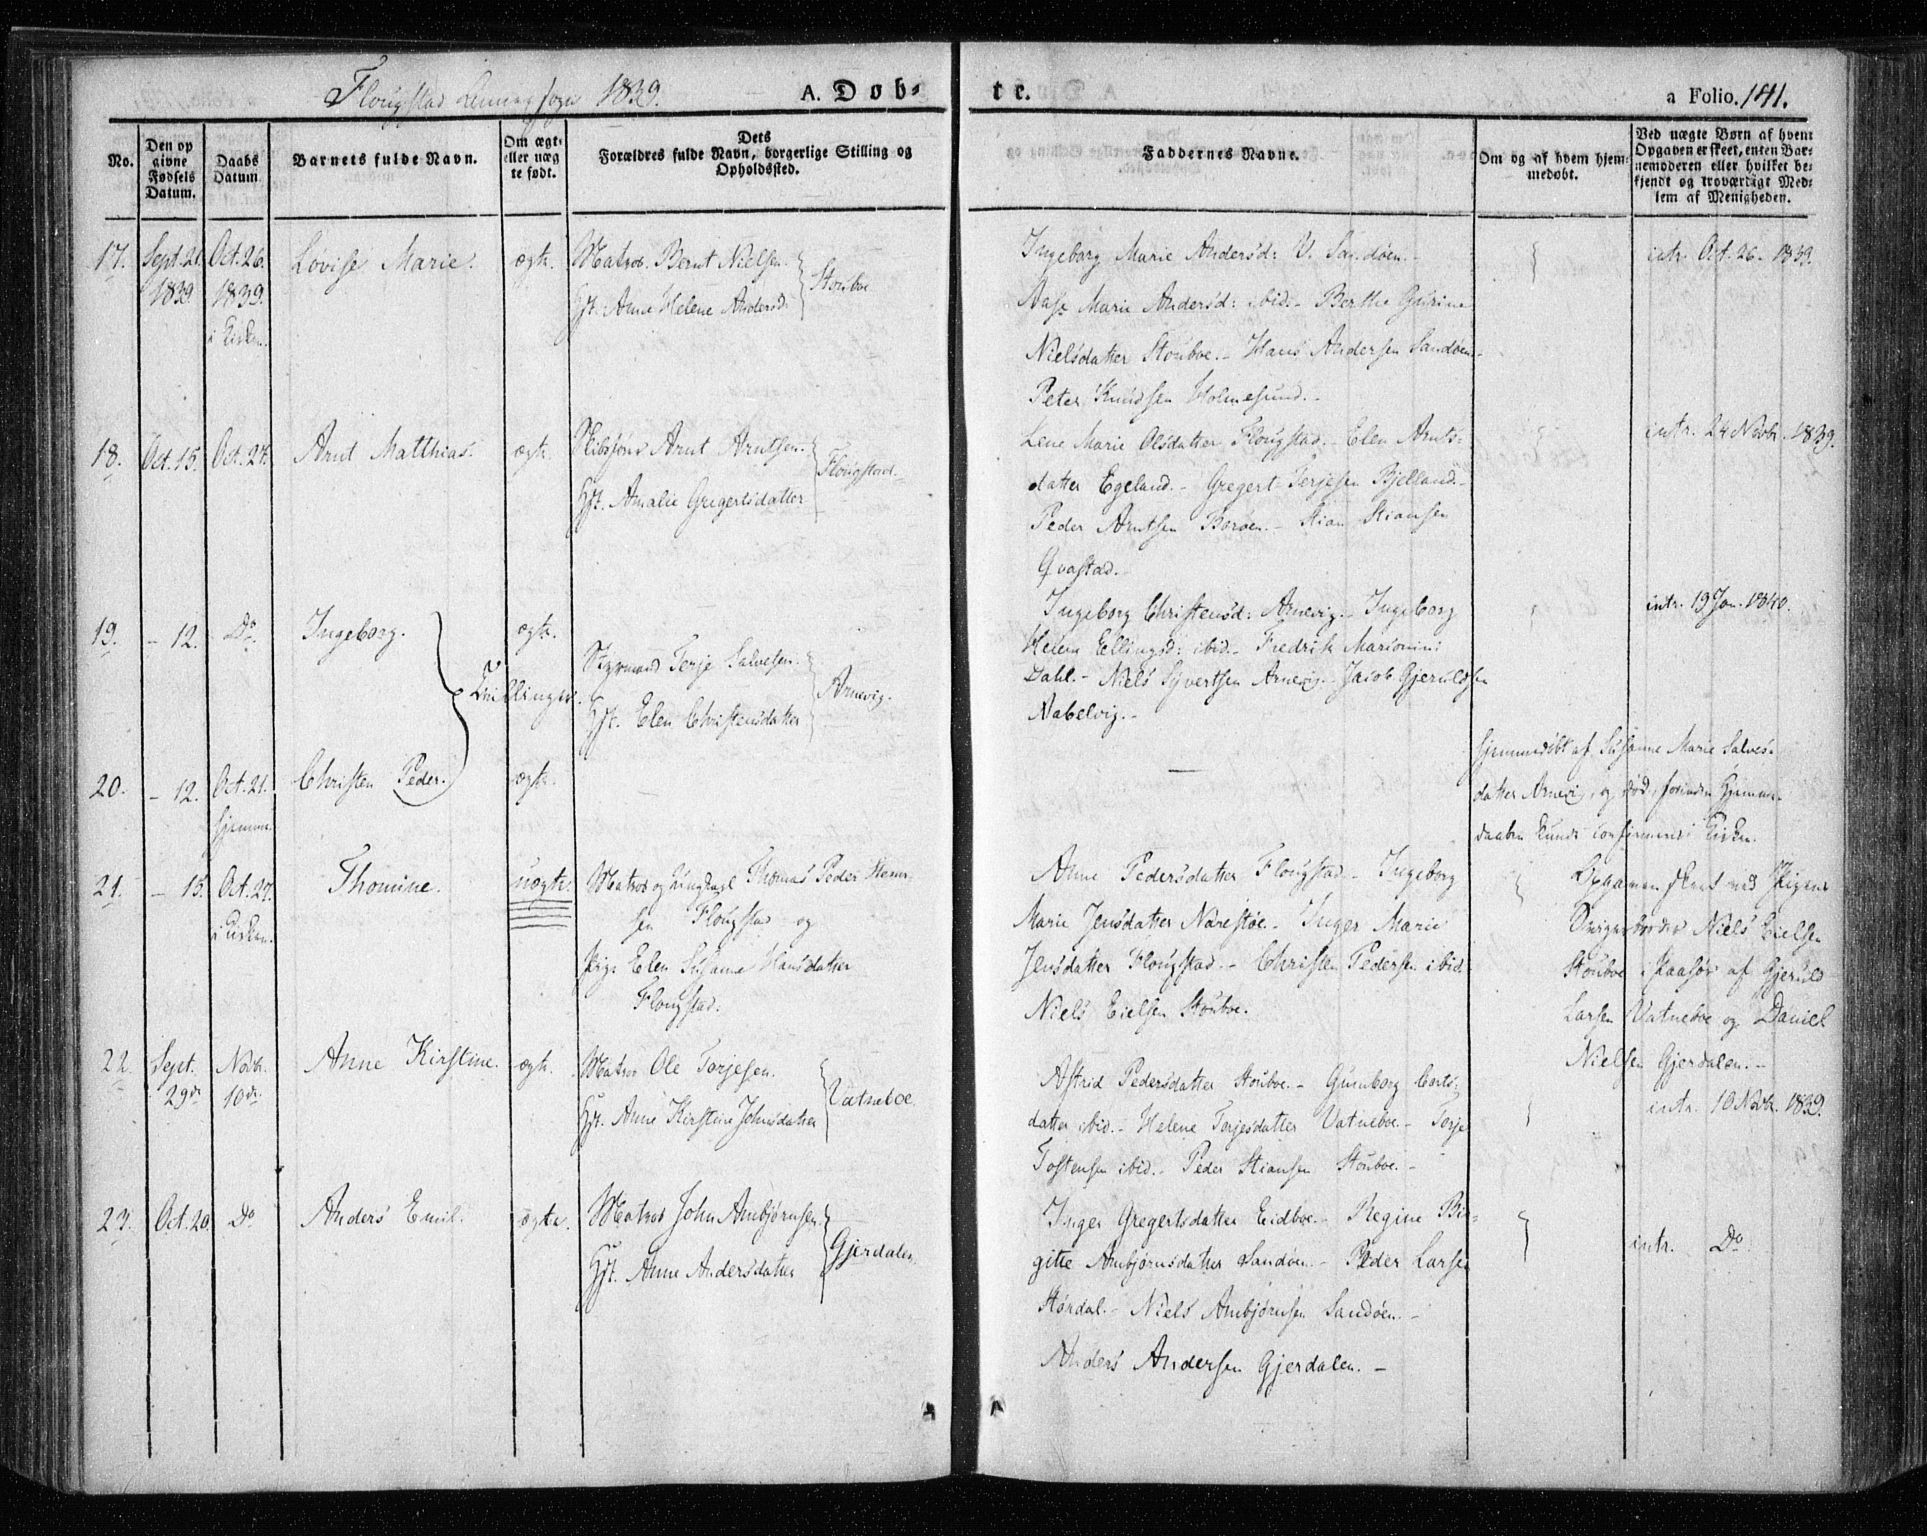 Flougstad 1839.
A. Døb-
te.
a Folio. 141.
No.
Den op
givne
Fødsels
Datum.
Daabs
Datum
Barnets fulde Navn.
Om ægt-
eller uæg
te født.
Dets
Forældres fulde Navn, borgerlige Stilling og
Opholdssted.
Faddernes Navne.
Om og af hvem hjem-
medøbt.
Ved uægte Børn af hvem
Opgaven er skeet, enten Bar-
nemoderen eller hvilket be-
kjendt og troværdigt Med-
lem af Menigheden.
17.
Sept. 21.
1839
Oct. 26.
1839.
i Kirken.
Lovise Marie.
ægte.
Matros Bernt Nielsen.
Hst. Anne Helene Andersd:
Stoúboe
Ingeborg Marie Andersd: V. Sandøen.-
Aase Marie Andersd: ibid.- Berthe Gúrine
Nielsdatter Stoúboe.- Hans Andersen Sandøen.-
Peter Knúdsen Holmesund.-
intr. Oct. 26. 1839.
18.
Oct. 15.
Oct. 27.
Arnt Matthias.
ægte.
Skibsfører Arnt Arntsen.
Hst. Amalie Gregertsdatter
Flougstad.
Lene Marie Olsdatter Flougstad.- Elen Arnts-
datter Egeland.- Gregert Terjesen Bjelland.-
Peder Arntsen Borøen.- Stian Stiansen
Qvastad.
intr. 24 Novbr. 1839.
19.
- 12.
Do.
Ingeborg.
ægte.
Tvillinger.
Styrmand Terje Salvesen.
Hst. Elen Christensdatter
Arnevig.
Ingeborg Christensd: Arnevig.- Ingeborg
Helene Ellingsd: ibid.- Fredrik Marionini
Dahl.- Niels Syvertsen Arnevig.- Jacob Gjeruldsen
Nabelvig.-
intr. 19 Jan. 1840.
20.
- 12.
Oct. 21.
hjemme
Christen Peder.
ægte.
hjemmedøbt af Susanne Marie Salves-
datter Arnevig, og død, forinden Hjemme-
daaben kunde confirmeres i Kirken.
21.
- 15.
Oct. 27.
i Kirken.
Thomine.
uægte.
Matros og Ungkarl Thomas Peder
sen Flougstad og
Pige Elen Susanne Hansdatter
Flougstad.
Anne Pedersdatter Flougstad.- Ingeborg
Marie Jensdatter Narestøe.- Inger Marie
Jensdatter Flougstad.- Christen Pedersen ibid.
Niels Eielsen Stoúboe.
Opgaven skeet ved Pigens
Svigerbroder Niels Eielsen
Stoúboe i Paahør af Gjeruld
Larsen Vatneboe og Daniel
Nielsen Gjerdalen.-
22.
Sept.
29de
Novbr.
10de.
Anne Kirstine.
ægte.
Matros Ole Terjesen.
Hst. Anne Kirstine Johnsdatter
Vatneboe.
Astrid Pedersdatter Stoúboe.- Gunborg Berts-
datter ibid.- Helene Terjesdatter Vatneboe.- Terje
Tostensen ibid.- Peder Stiansen Stoúboe.-
intr. 10 Novbr. 1839.
23.
Oct. 20.
Do.
Anders Emil.
ægte.
Matros John Ambjørnsen
Hst. Anne Andersdatter
Gjerdalen.
Inger Gregertsdatter Eidboe.- Regine Bir-
gitte Ambjørnsdatter Sandøen.- Peder Larsen
Størdal.- Niels Ambjørnsen Sandøen.-
Anders Andersen Gjerdalen.-
intr. Do.